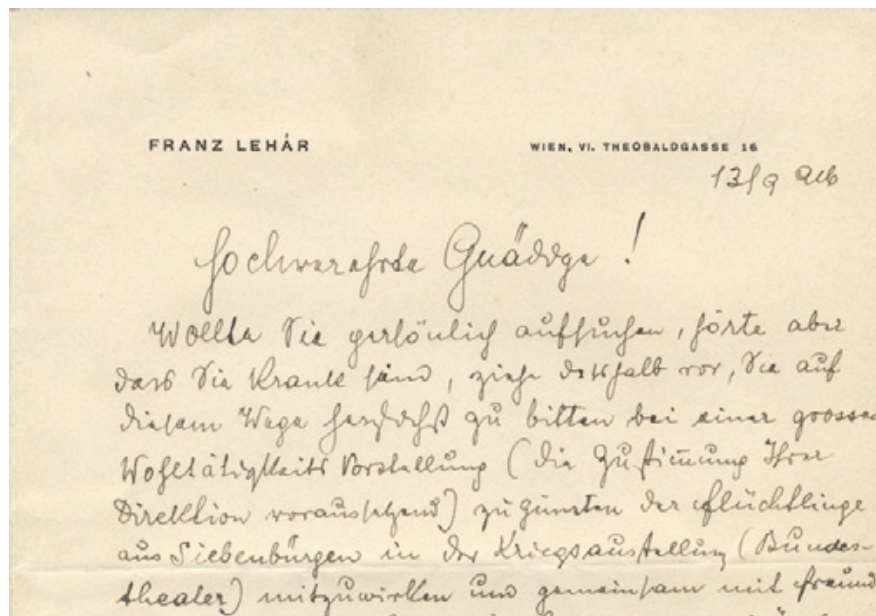 FRANZ LEHÁR
WIEN, VI. THEOBALDGASSE 16
13/9 916
Hochverehrte Gnädige!
Wollte Sie persönlich aufsuchen, hörte aber
dass Sie Krank sind, ziehe deshalb vor, Sie auf
diesem Wege herzlichst zu bitten bei einer grossen
Wohltätigkeits Vorstellung (die Zustimmung Ihrer
Direktion voraussetzend) zu gunsten der Flüchtlinge
aus Siebenbürgen in der Kriegsausstellung (Bundes-
theater) mitzuwirken und gemeinsam mit Freund